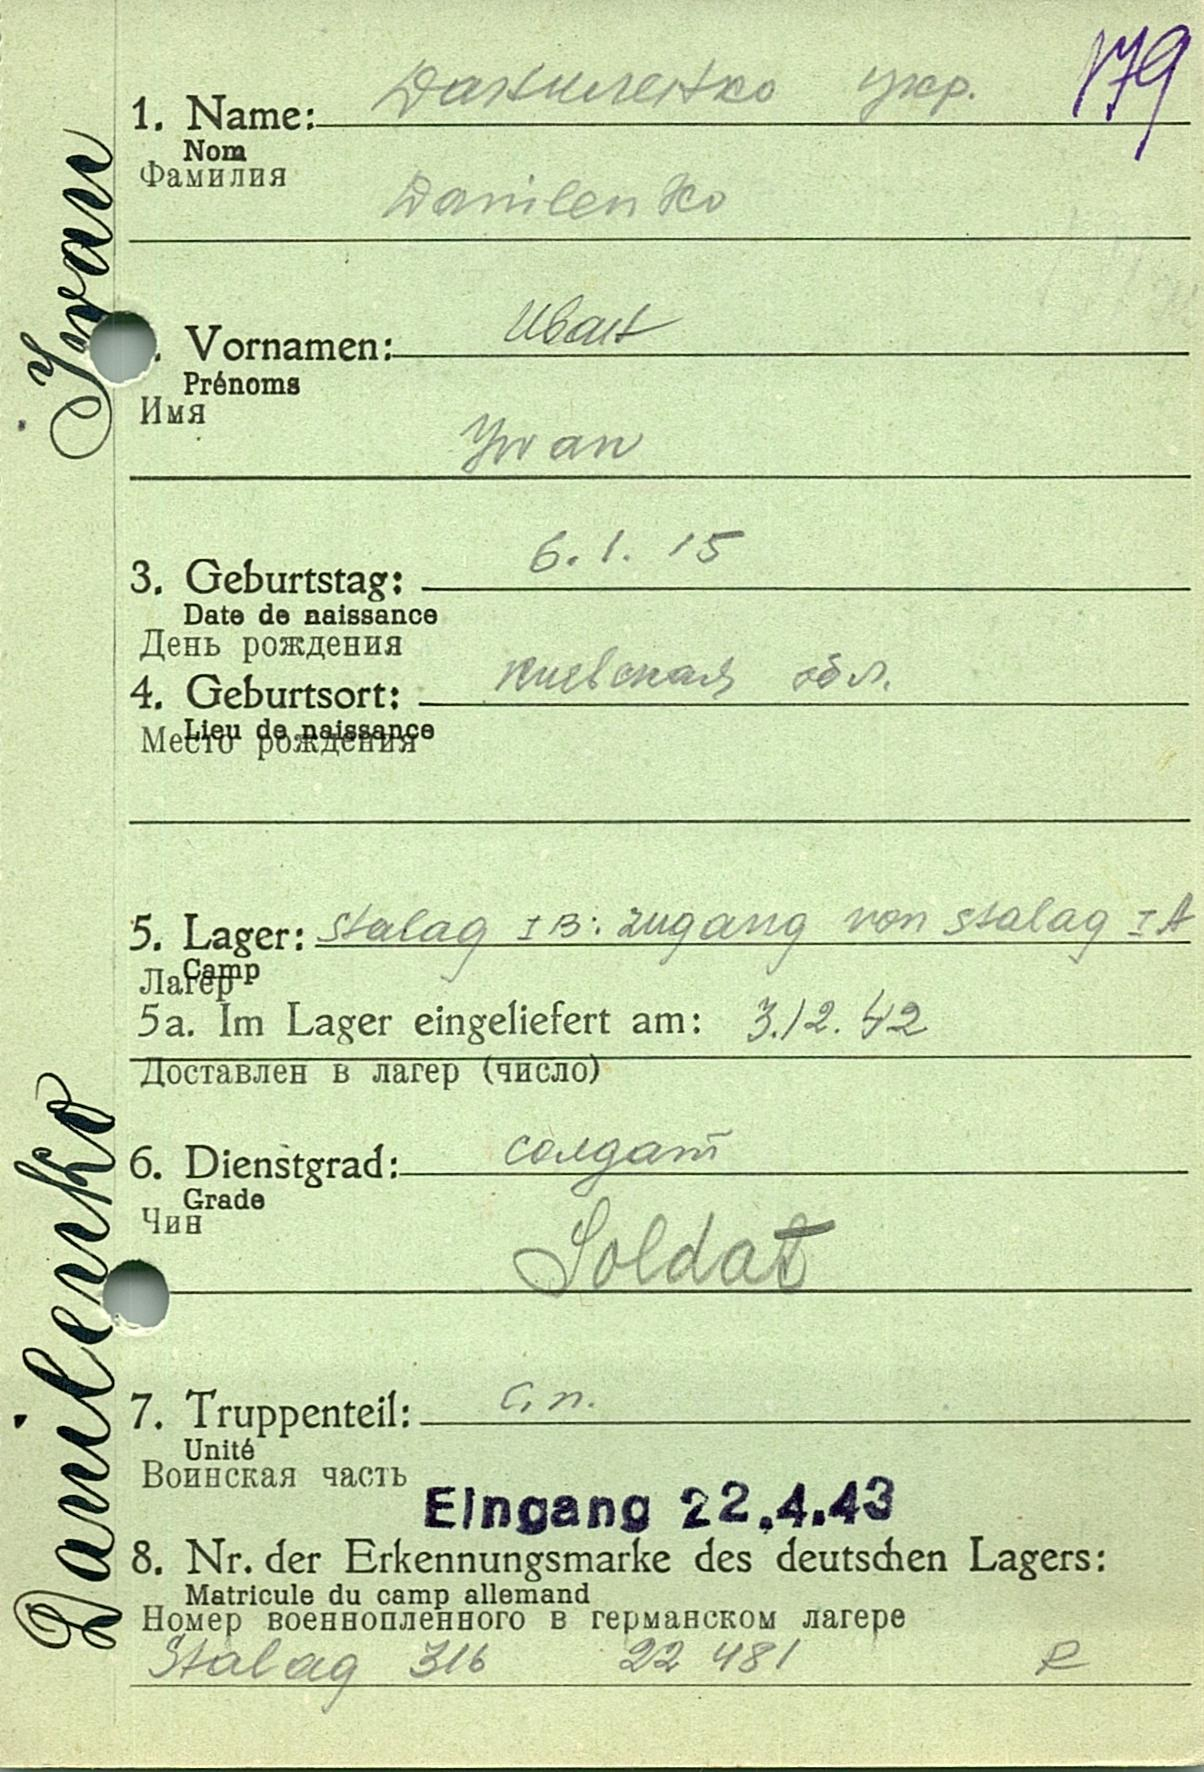 179
1. Name: Даниленко укр.
Nom
Фамилия
Danilenko
Vornamen: Иван
Prénoms
Имя
Ywan
3. Geburtstag: 6.1.15
Date de naissance
День рождения
4. Geburtsort: Киевская обл.
Lieu de naissance
Место рождения
5. Lager: Stalag I B: Zugang von Stalag I A
Camp
Лагерь
5a. Im Lager eingeliefert am: 3.12.42
Доставлен в лагер (число)
6. Dienstgrad: солдат
Grade
Чин
Soldat
7. Truppenteil: с.п.
Unité
Воинская часть
Eingang 22.4.43
8. Nr. der Erkennungsmarke des deutschen Lagers:
Matricule du camp allemand
Номер военнопленного в германском лагере
Stalag 316 22 481 R
Danilenko Iwan